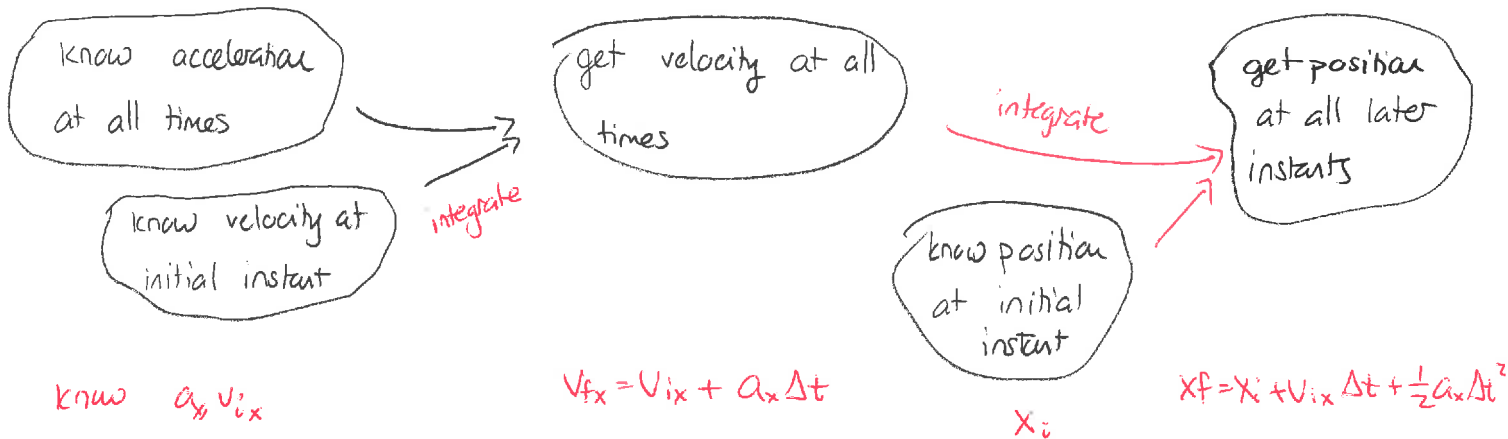 know acceleration
at all times
know velocity at
initial instant
integrate
get velocity at all
times
integrate
know position
at initial
instant
get position
at all later
instants
know aₓ, vᵢₓ
V_fx = V_ix + aₓ Δt
xᵢ
x_f = xᵢ + v_ix Δt + ½ aₓ Δt²